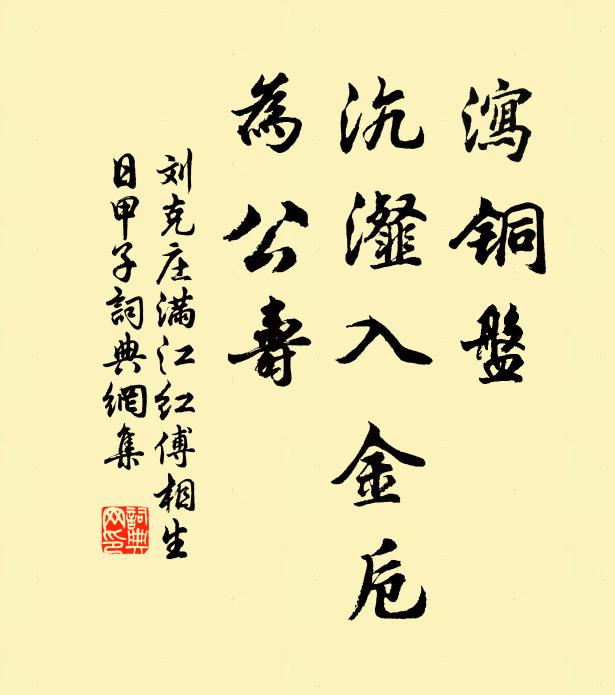 瀉铜盤
沆瀣入金卮
為公壽
刘克庄滿江红傅相生
日甲子詞典網集
詞典
网印